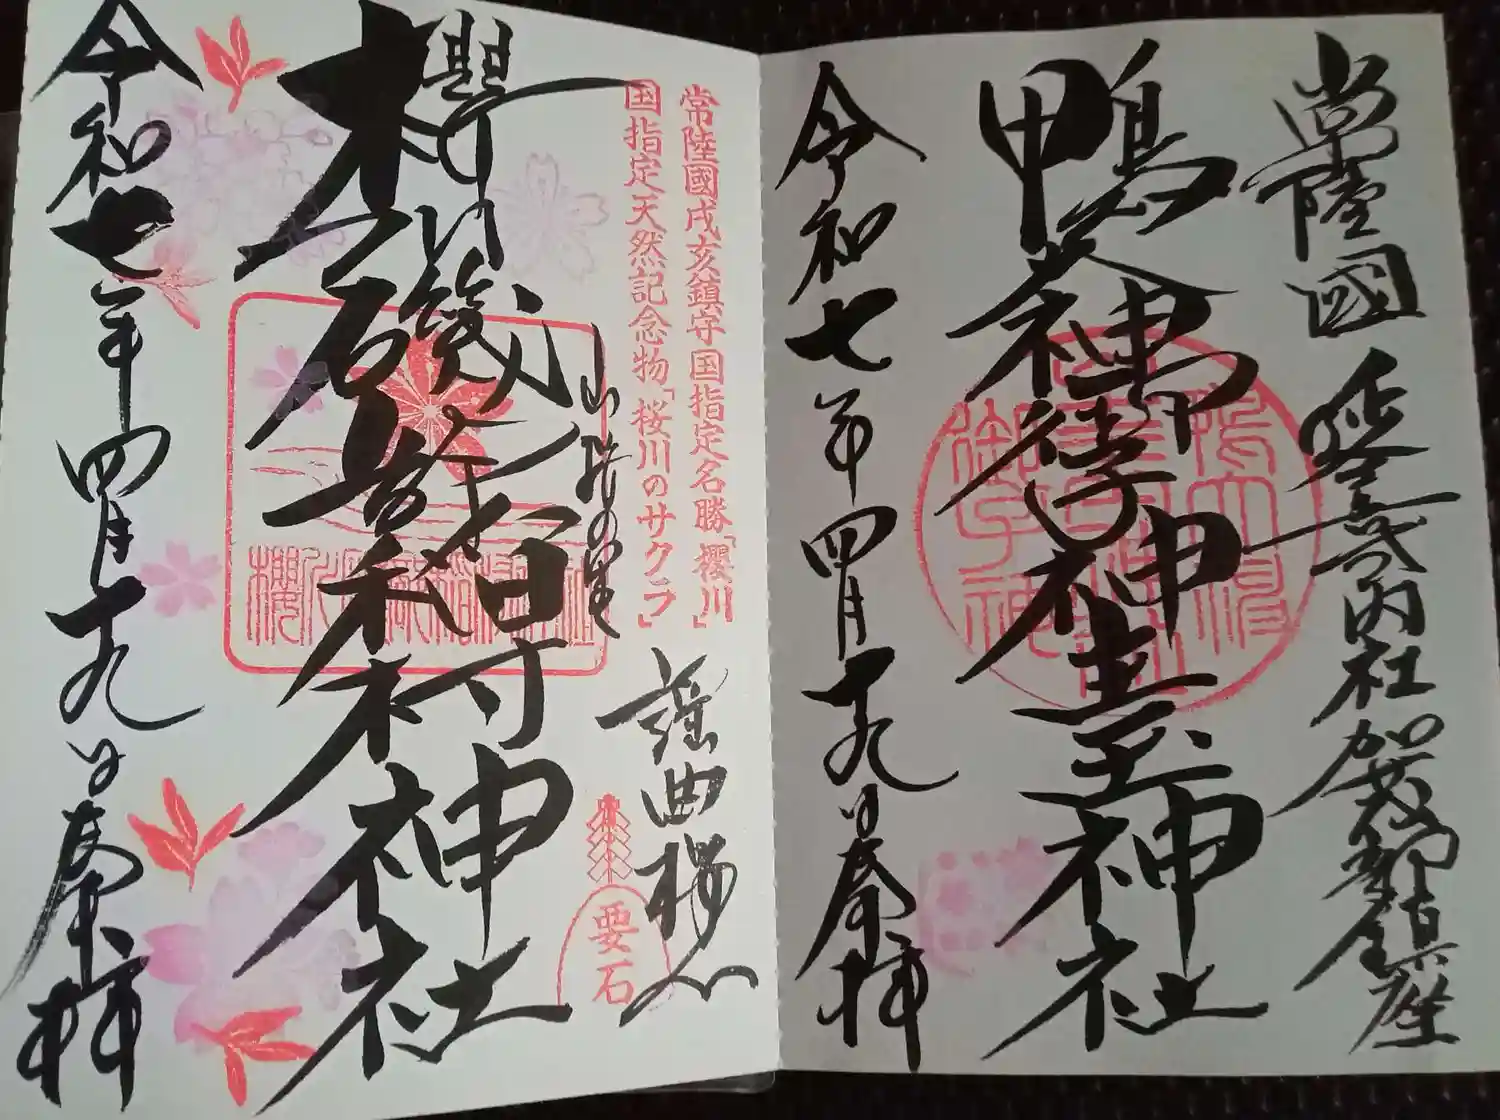 常陸國
延喜式内社加茂部鎮座
鴨大神御子神主玉神社
令和七年四月十九日奉拝
常陸國戌亥鎮守国指定名勝「櫻川」
国指定天然記念物「桜川のサクラ」
山桜の里
謡曲櫻川
要石
櫻川磯部稲村神社
令和七年四月十九日奉拝